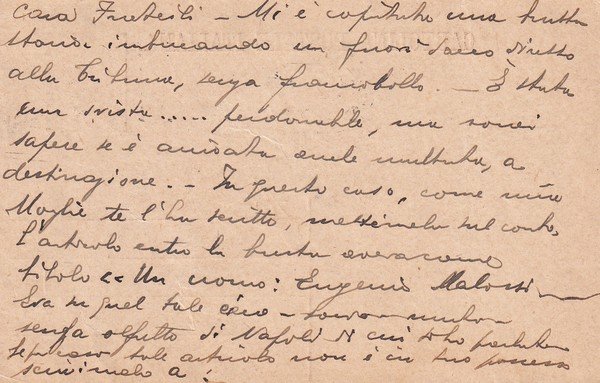 Cara Fratelli – Mi è capitata una brutta
storia imbucando un fuori sacco diretto
alla Tribuna, senza francobollo. – È stata
una svista..... perdonabile, ma vorrei
sapere se è arrivata anche multata, a
destinazione. – In questo caso, come mia
Moglie te l'ha scritto, mettimela sul conto.
L'articolo entro la busta aveva come
titolo «Un uomo: Eugenio Malossi
Era su quel tale cieco – sordo – muto –
senza olfatto di Napoli di cui ti ho parlato
Se per caso tale articolo non è in tuo possesso
scrivimelo a!